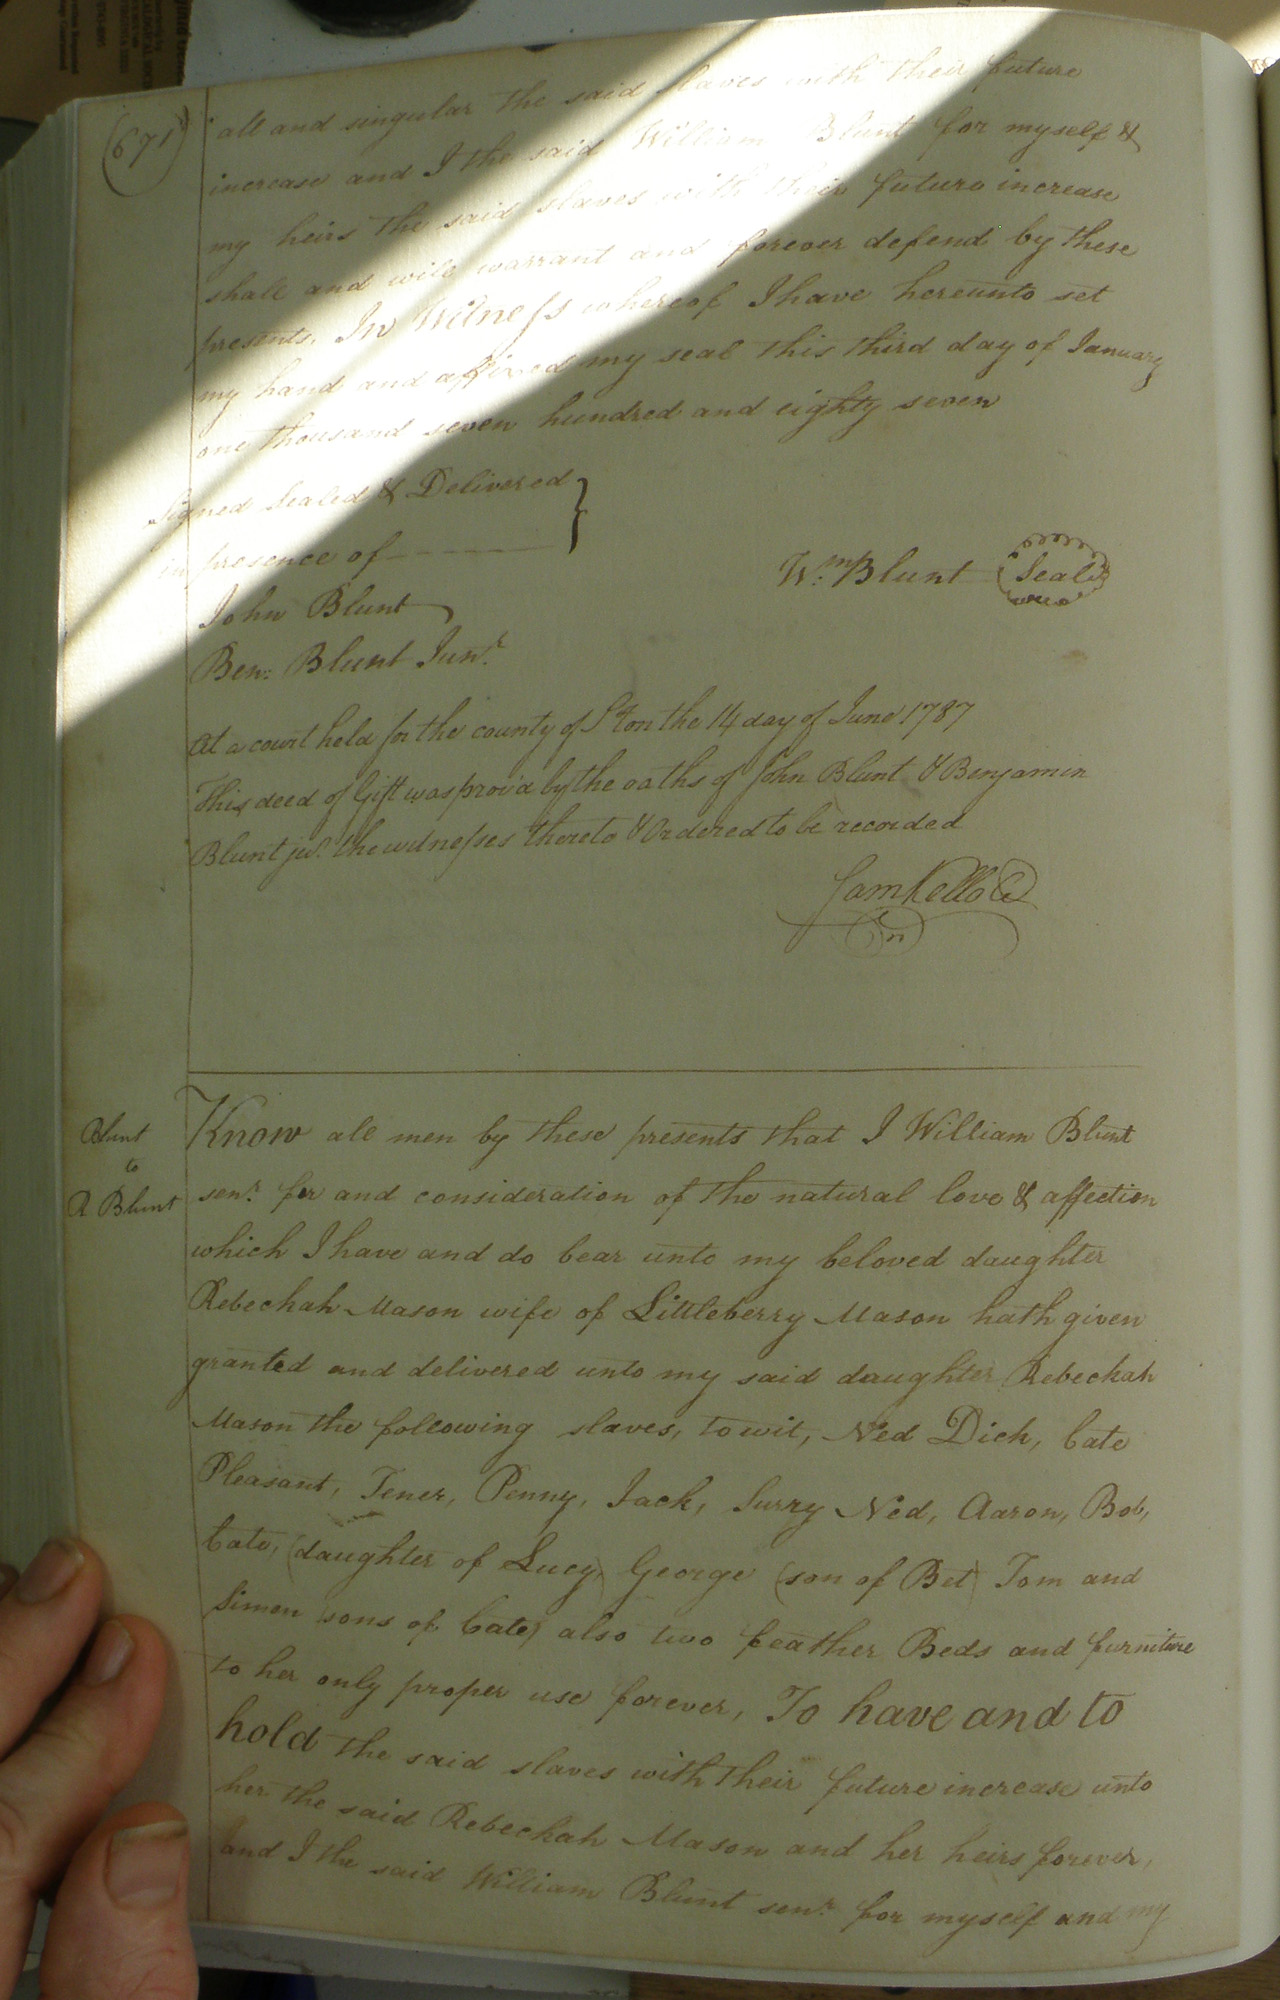 (671)
all and singular the said slaves with their future
increase and I the said William Blunt for myself &
my heirs the said slaves with their future increase
shall and will warrant and forever defend by these
presents, In Witness whereof I have hereunto set
my hand and affixed my seal this third day of January
one thousand seven hundred and eighty seven
Signed Sealed & Delivered
in presence of
Wm. Blunt Seal
John Blunt
Ben: Blunt Junr.
At a court held for the county of S'ton the 14 day of June 1787
This deed of Gift was prov'd by the oaths of John Blunt & Benjamin
Blunt jur. the witnesses thereto & Ordered to be recorded
Sam Kello
Blunt
to
R Blunt
Know all men by these presents that I William Blunt
senr. for and consideration of the natural love & affection
which I have and do bear unto my beloved daughter
Rebeckah Mason wife of Littleberry Mason hath given
granted and delivered unto my said daughter Rebeckah
Mason the following slaves, to wit, Ned Dick, Cate
Pleasant, Tener, Penny, Jack, Surry Ned, Aaron, Bob,
Cate, (daughter of Lucy) George (son of Bet) Tom and
Simon (sons of Cate) also two feather Beds and furniture
to her only proper use forever, To have and to
hold the said slaves with their future increase unto
her the said Rebeckah Mason and her heirs forever,
and I the said William Blunt senr. for myself and my